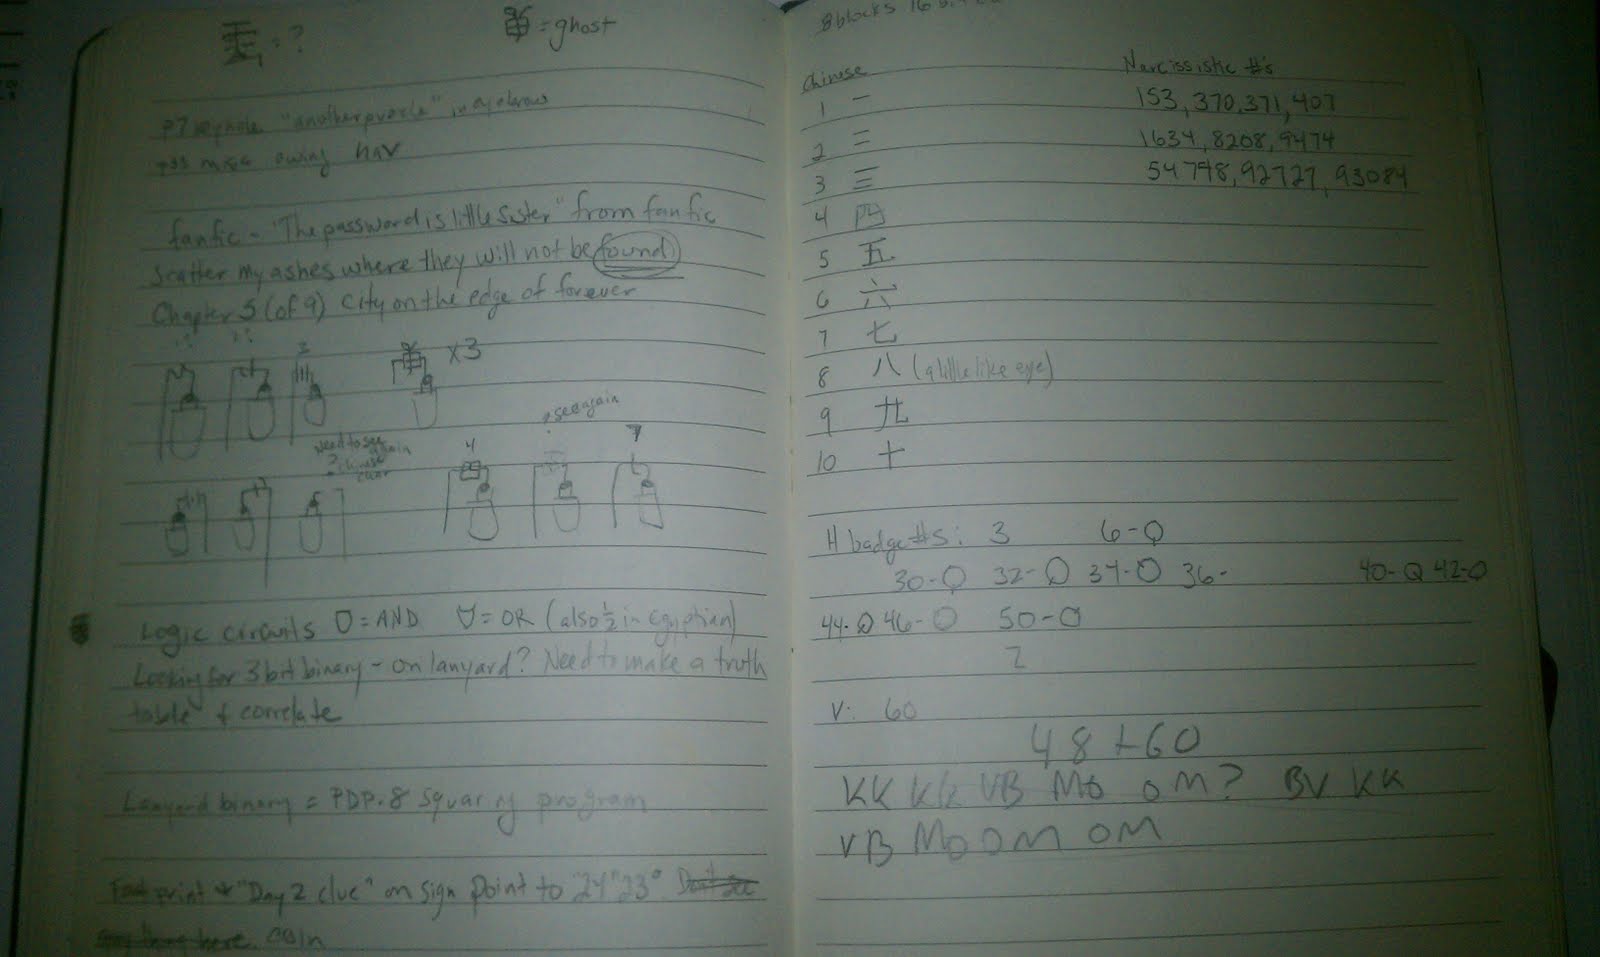 = ?
= ghost
P7 keyhole "another puzzle" in eyebrows
miss owing hav
fanfic - "The password is little sister" from fanfic
Scatter my ashes where they will not be found
Chapter 5 (of 9) City on the edge of forever
3
x3
need to see again
? chinese char
4
? see again
7
Logic circuits = AND = OR (also 1/2 in Egyptian)
Looking for 3 bit binary - on lanyard? Need to make a truth
table & correlate
Lanyard binary = PDP-8 Squaring program
Foot print & "Day 2 clue" on sign point to "24" 23°
coin
8 blocks 16
Chinese
Narcissistic #'s
1 一
153, 370, 371, 407
2 二
1634, 8208, 9474
3 三
54748, 92727, 93084
4 四
5 五
6 六
7 七
8 八 (a little like eye)
9 九
10 十
H badge #s: 3 6-Q
30-Q 32-O 34-O 36- 40-Q 42-O
44-O 46-O 50-O
Z
V: 60
48 + 60
KK KK VB MO OM? BV KK
VB MO OM OM